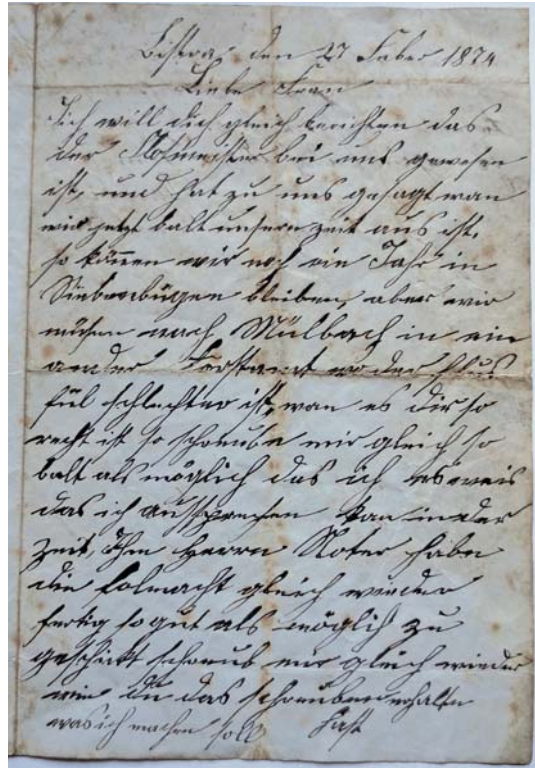 Bistra, den 27 Feber 1874
Liebe Frau
Ich will dich gleich berichten das
der Hofmeister bei uns gewesen
ist, und hat zu uns gesagt wan
mir jetzt balt unsere zeit aus ist,
so können wir noch ein Jahr in
Siebenbügen bleiben, aber wir
müsen nach Mülbach in ein
ander Forstamt wo der Flus
fül schlechter ist, wan es dir so
recht ist so schreube mir gleich so
balt als möglich das ich es weis
das ich aussprechen kan in der
Zeit, Herrn Noter habe
die folmacht gleich wieder
fertig so gut als möglich zu
geschikt schreub mir gleich wieder
wie Du das schreuben erhalten
was ich machen soll hast